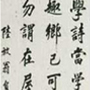 學詩當學
趣鄉已可
勿謂在屋
陸放翁